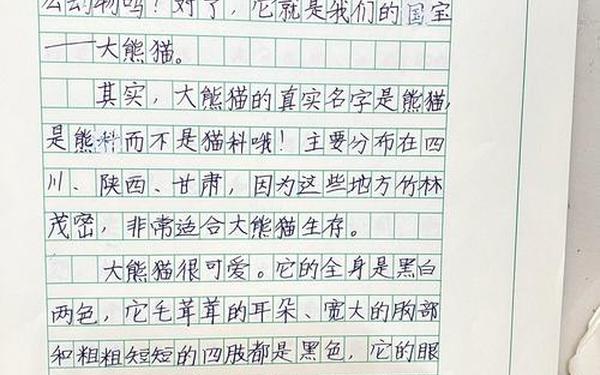 么动物吗？对了，它就是我们的国宝
——大熊猫。
其实，大熊猫的真实名字是熊猫，
是熊科而不是猫科哦！主要分布在四
川、陕西、甘肃，因为这些地方竹林
茂密，非常适合大熊猫生存。
大熊猫很可爱。它的全身是黑白
两色，它毛茸茸的耳朵、宽大的胸部
和粗粗短短的四肢都是黑色，它的眼